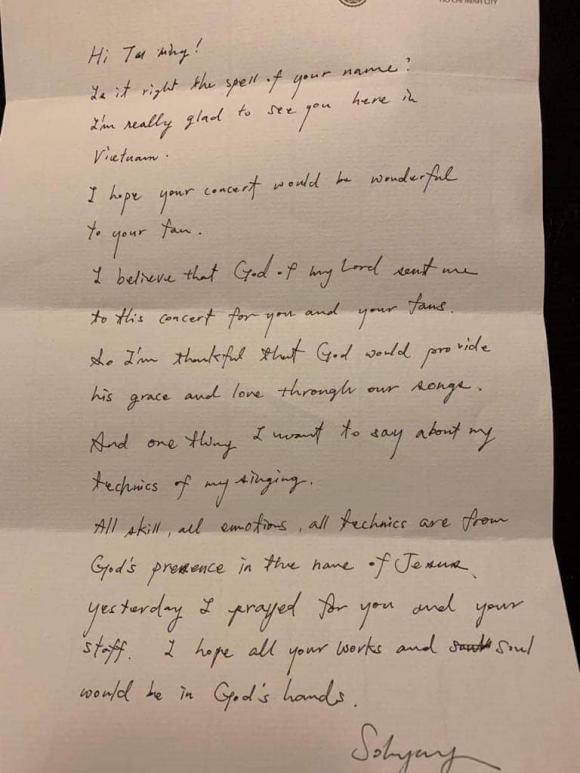 HO CHI MINH CITY
Hi Tae ming!
Is it right the spell of your name?
I'm really glad to see you here in
Vietnam.
I hope your concert would be wonderful
to your fan.
I believe that God of my Lord sent me
to this concert for you and your fans.
So I'm thankful that God would provide
his grace and love through our songs.
And one thing I want to say about my
technics of my singing.
All skill, all emotions, all technics are from
God's presence in the name of Jesus.
yesterday I prayed for you and your
staff. I hope all your works and soul
would be in God's hands.
Sohyang